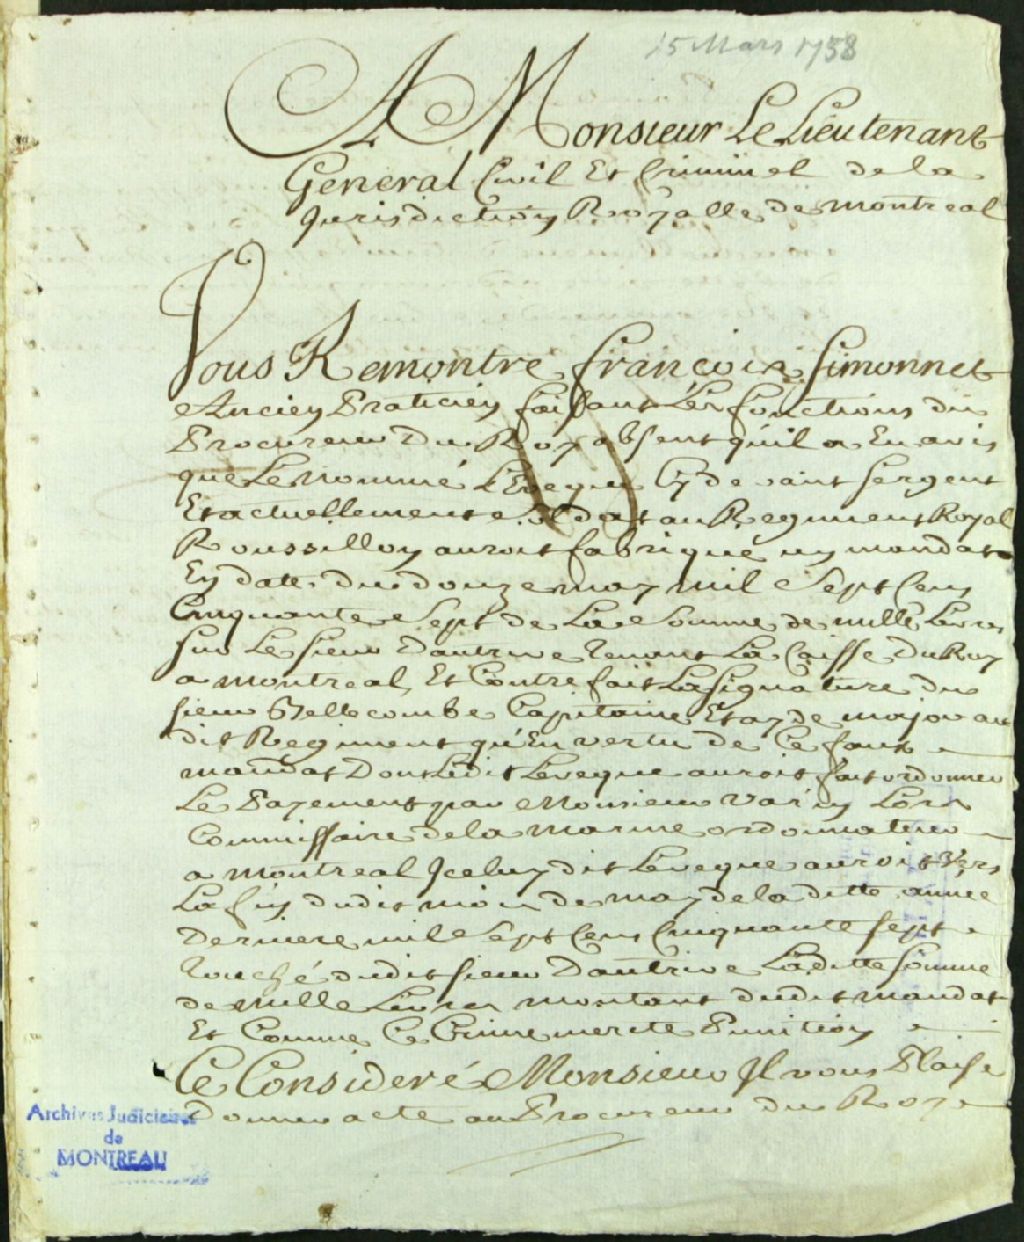 15 Mars 1758
A Monsieur Le Lieutenant
General Civil Et Criminel de la
Jurisdiction Royalle de Montreal
Vous Remontre françois Simonnet
Ancien Praticien faisant Les fonctions du
Procureur Du Roy absent qu'il a Eu avis
que Le nommé L'Eveque Cy devant sergent
Et actuellement soldat au Regiment Royal
Roussillon auroit fabriqué un mandat
En datte du douze may mil sept Cens
Cinquante sept de La somme de mille Livres
sur Le sieur Dautrive tenant La Caisse Du Roy
a Montreal, Et Contrefait La signature du
sieur Bellecombe Capitaine Et ayde major au
dit Regiment qu'En vertu de Ce faux
mandat Dont Ledit Leveque auroit fait ordonner
Le Payement par Monsieur Varin Lors
Commissaire de la marine ordonnateur
a Montreal Iceluy dit Leveque auroit Vers
La fin dudit mois de may de la ditte année
derniere mil sept Cens Cinquante sept
touché dudit sieur Dautrive Laditte somme
de mille Livres montant dudit mandat
Et Comme Ce Crime merite Punition
Ce Consideré Monsieur Il vous Plaise
donner acte au Procureur du Roy
Archives Judiciaires
de
MONTREAL